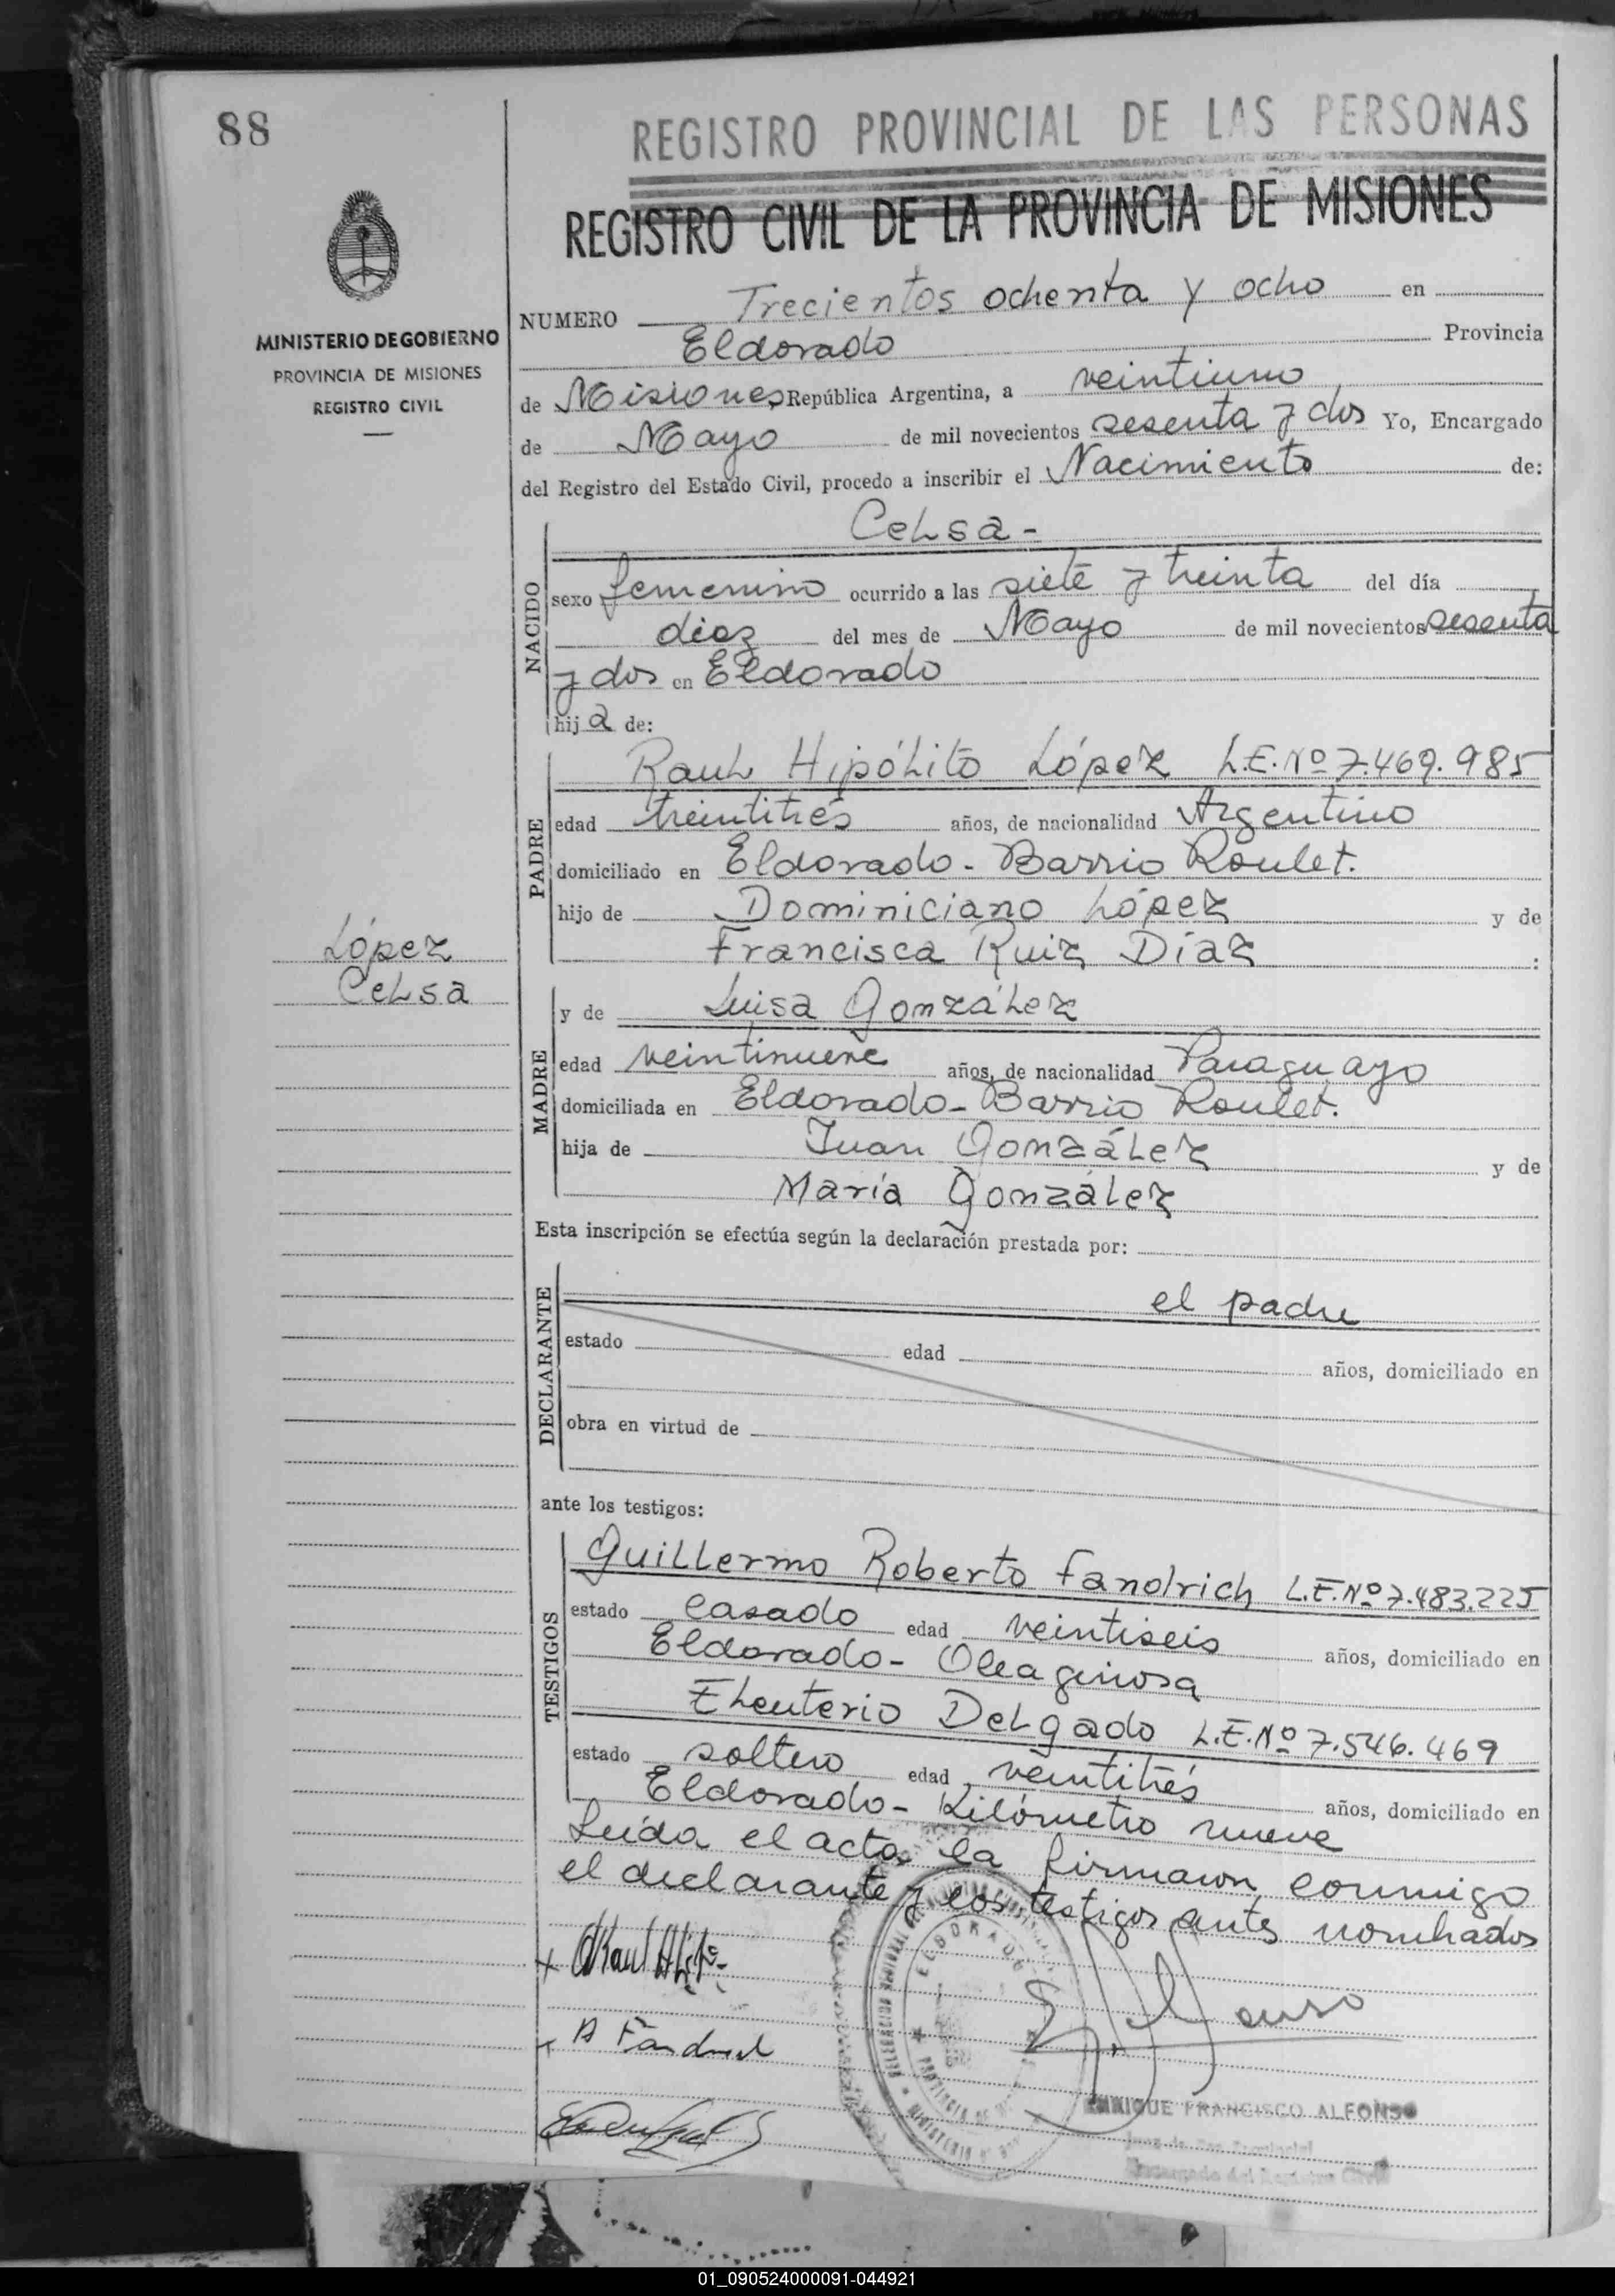 88
REGISTRO PROVINCIAL DE LAS PERSONAS
REGISTRO CIVIL DE LA PROVINCIA DE MISIONES
MINISTERIO DE GOBIERNO
PROVINCIA DE MISIONES
REGISTRO CIVIL
NUMERO Trecientos ochenta y ocho en
Eldorado Provincia
de Misiones República Argentina, a veintiuno
de Mayo de mil novecientos sesenta y dos Yo, Encargado
del Registro del Estado Civil, procedo a inscribir el Nacimiento de:
NACIDO
Celsa-
sexo femenino ocurrido a las siete y treinta del día
diez del mes de Mayo de mil novecientos sesenta
y dos en Eldorado
hija de:
PADRE
Raul Hipólito López L.E. Nº 7.469.985
edad treintitrés años, de nacionalidad Argentino
domiciliado en Eldorado - Barrio Roulet.
hijo de Dominiciano López y de
Francisca Ruiz Díaz :
López
Celsa
MADRE
y de Luisa González
edad veintinueve años, de nacionalidad Paraguayo
domiciliada en Eldorado - Barrio Roulet.
hija de Juan González y de
María González
Esta inscripción se efectúa según la declaración prestada por:
DECLARANTE
el padre
estado edad años, domiciliado en
obra en virtud de
ante los testigos:
TESTIGOS
Guillermo Roberto Fandrich L.E. Nº 7.483.225
estado casado edad veintiseis años, domiciliado en
Eldorado - Oleaginosa
Eleuterio Delgado L.E. Nº 7.546.469
estado soltero edad veintitrés años, domiciliado en
Eldorado - Kilómetro nueve
Leída el acta la firmaron conmigo
el declarante y los testigos antes nombrados
ELDORADO
ENRIQUE FRANCISCO ALFONSO
Juez de Paz Provincial
Encargado del Registro Civil
01_090524000091-044921